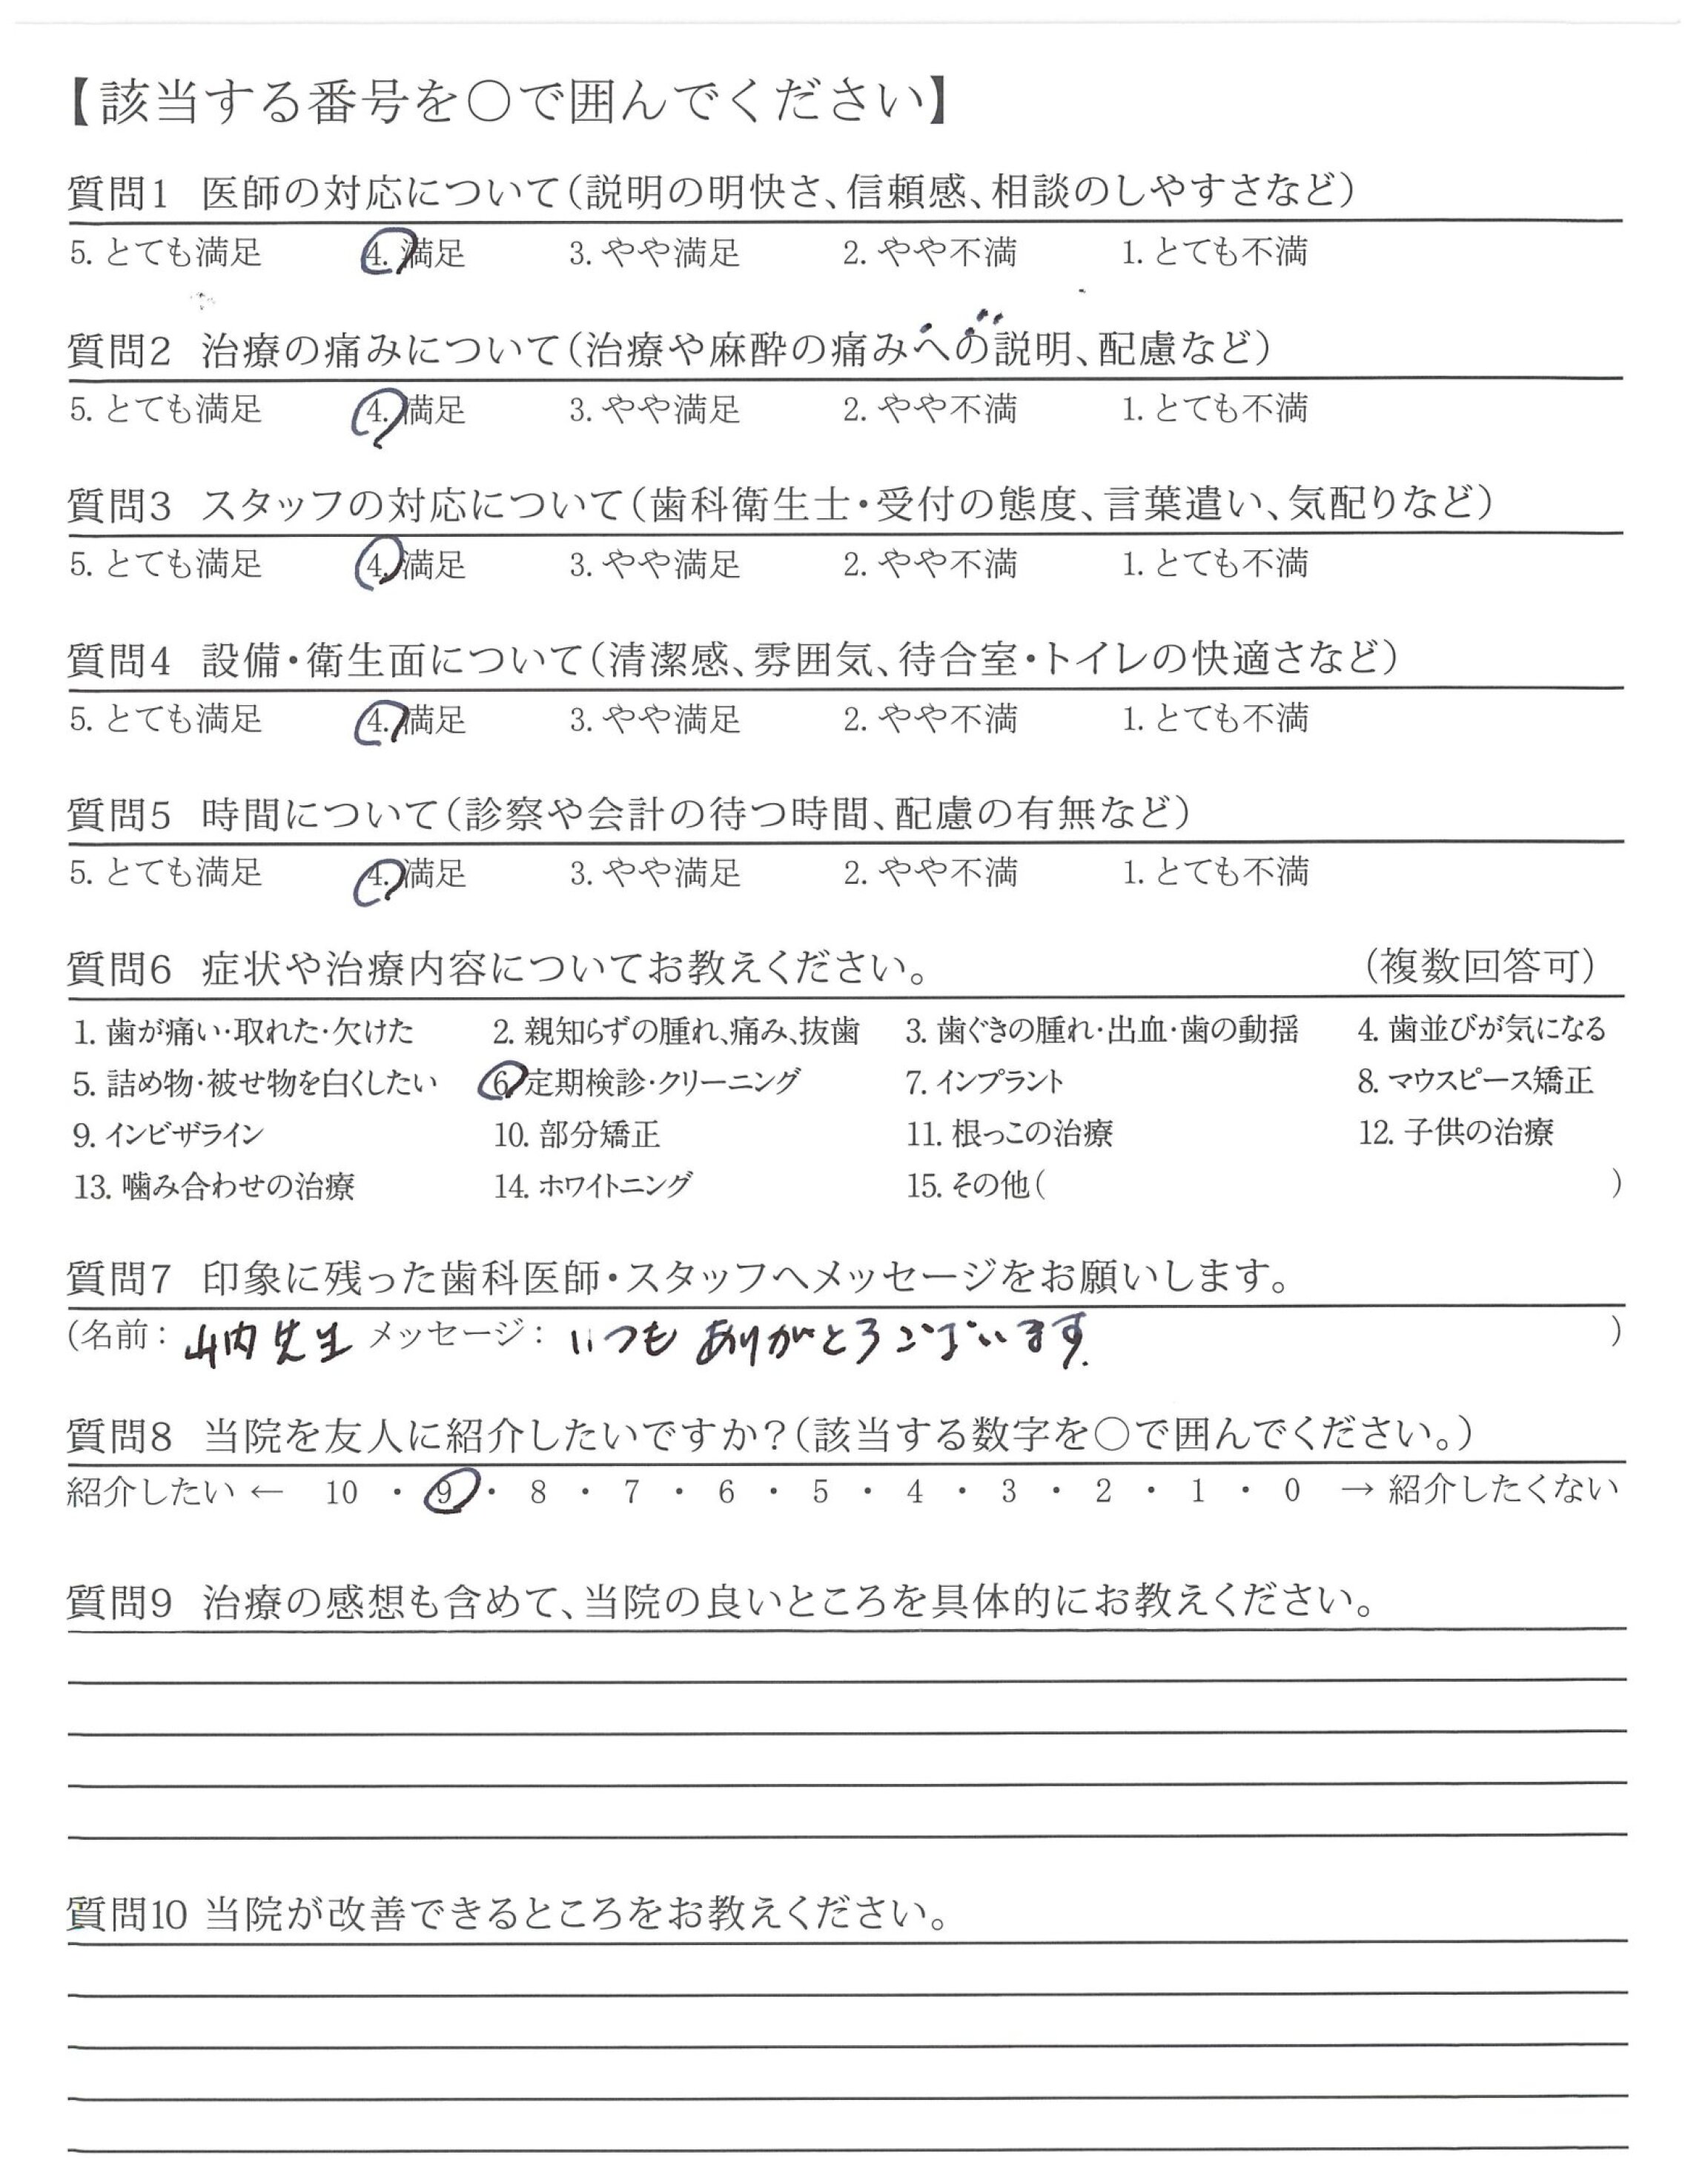 【該当する番号を○で囲んでください】
質問1 医師の対応について(説明の明快さ、信頼感、相談のしやすさなど)
5. とても満足 4. 満足 3. やや満足 2. やや不満 1. とても不満
質問2 治療の痛みについて(治療や麻酔の痛みへの説明、配慮など)
5. とても満足 4. 満足 3. やや満足 2. やや不満 1. とても不満
質問3 スタッフの対応について(歯科衛生士・受付の態度、言葉遣い、気配りなど)
5. とても満足 4. 満足 3. やや満足 2. やや不満 1. とても不満
質問4 設備・衛生面について(清潔感、雰囲気、待合室・トイレの快適さなど)
5. とても満足 4. 満足 3. やや満足 2. やや不満 1. とても不満
質問5 時間について(診察や会計の待つ時間、配慮の有無など)
5. とても満足 4. 満足 3. やや満足 2. やや不満 1. とても不満
質問6 症状や治療内容についてお教えください。 (複数回答可)
1. 歯が痛い・取れた・欠けた 2. 親知らずの腫れ、痛み、抜歯 3. 歯ぐきの腫れ・出血・歯の動揺 4. 歯並びが気になる
5. 詰め物・被せ物を白くしたい 6. 定期検診・クリーニング 7. インプラント 8. マウスピース矯正
9. インビザライン 10. 部分矯正 11. 根っこの治療 12. 子供の治療
13. 噛み合わせの治療 14. ホワイトニング 15. その他( )
質問7 印象に残った歯科医師・スタッフへメッセージをお願いします。
(名前: 山内先生 メッセージ: いつもありがとうございます. )
質問8 当院を友人に紹介したいですか?(該当する数字を○で囲んでください。)
紹介したい ← 10 ・ 9 ・ 8 ・ 7 ・ 6 ・ 5 ・ 4 ・ 3 ・ 2 ・ 1 ・ 0 → 紹介したくない
質問9 治療の感想も含めて、当院の良いところを具体的にお教えください。
質問10 当院が改善できるところをお教えください。